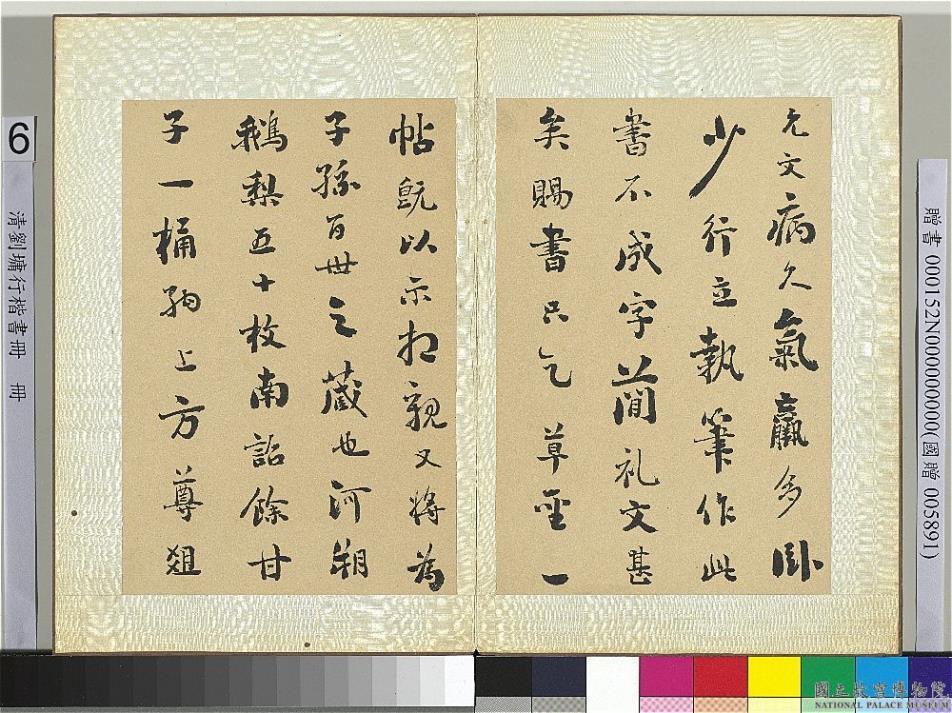 元文病久氣羸多臥
少行立執筆作此
書不成字簡礼文甚
矣賜書只乞草聖一
帖既以示相親又將為
子孫百世之藏也河朔
鵝梨五十枚南詔餘甘
子一桶駒上方尊俎
6
清劉墉行楷書冊 冊
贈書 000152N000000000(國贈 005891)
國立故宮博物院
NATIONAL PALACE MUSEUM